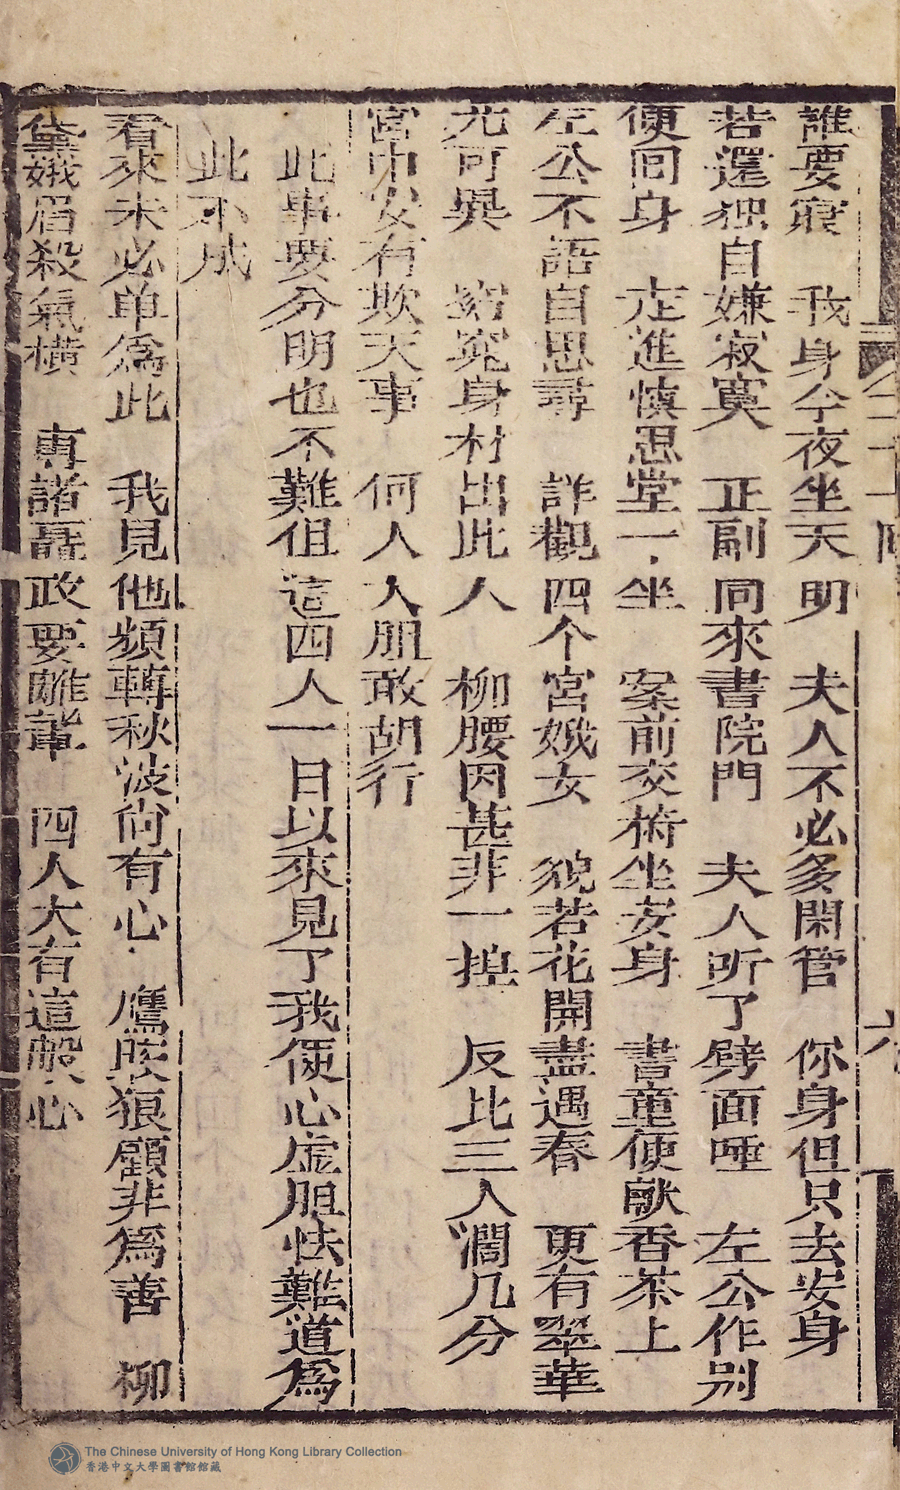 誰要寢　我身今夜坐天明　夫人不必多閑管　你身但只去安身
若還独自嫌寂寞　正副同來書院門　夫人听了劈面唾　左公作别
便回身　左進慎思堂一坐　案前交椅坐安身　書童便献香茶上
左公不語自思尋　詳觀四个宮娥女　貌若花開盡遇春　更有翠華
尤可異　窈窕身材出此人　柳腰因甚非一捏　反比三人濶几分
宮中安有欺天事　何人人胆敢胡行
此事要分明也不難但這四人一日以來見了我便心虚胆怯難道為
此不成
看來未必单為此　我見他頻轉秋波尚有心　鷹睃狼顧非為善　柳
黛娥眉殺氣横　專諸聶政要雌輩　四人大有這般心
The Chinese University of Hong Kong Library Collection
香港中文大學圖書館館藏